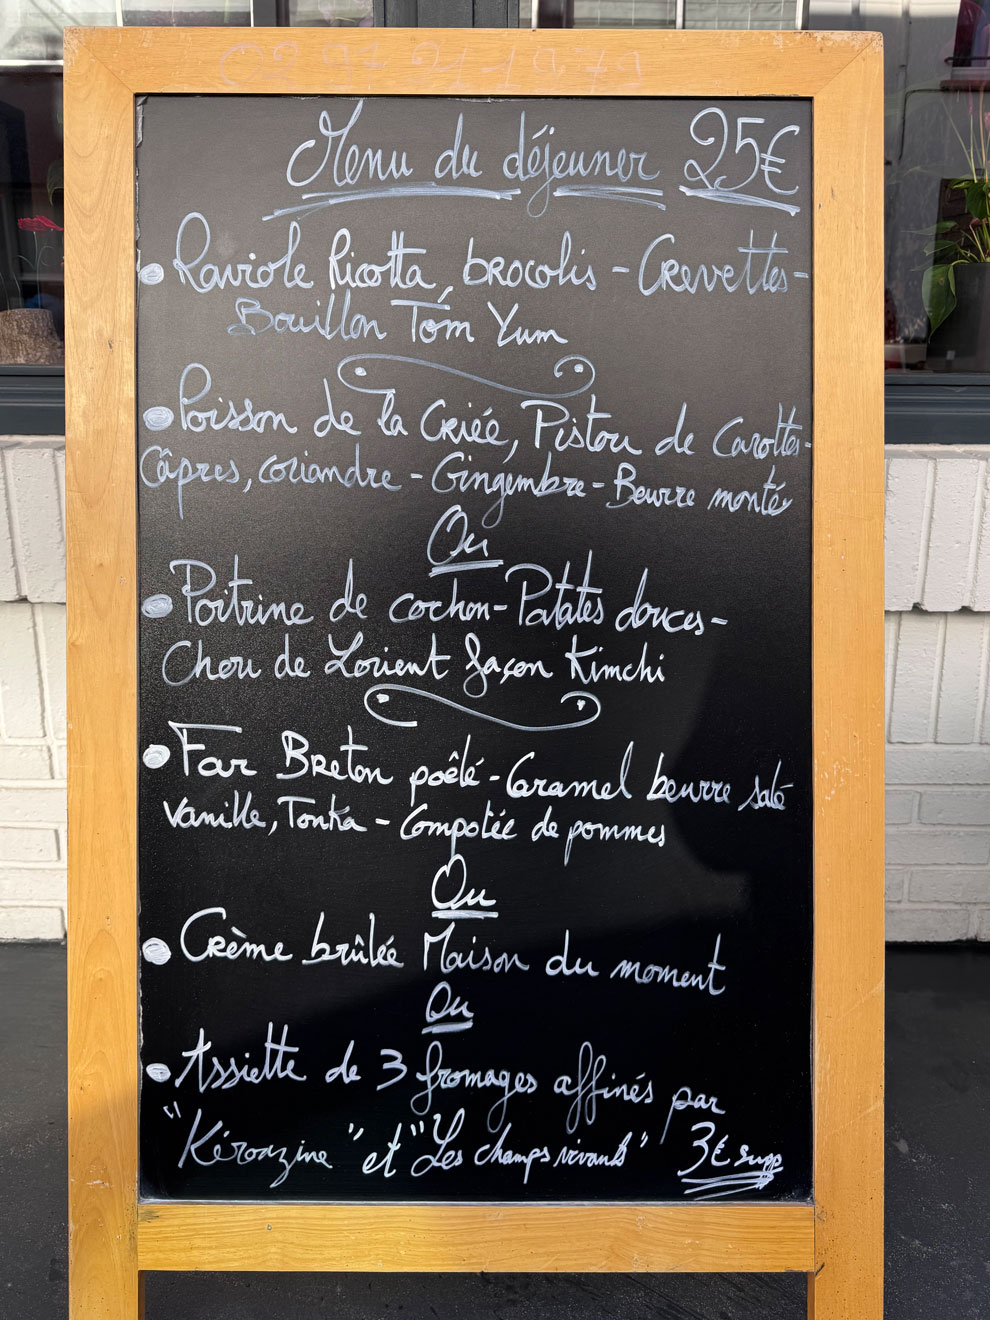 02 97 21 1979
Menu du déjeuner 25€
• Raviole Ricotta, brocolis - Crevettes -
Bouillon Tom Yum
• Poisson de la Criée, Pistou de Carottes -
Câpres, coriandre - Gingembre - Beurre monté
Ou
• Poitrine de cochon - Patates douces -
Chou de Lorient façon Kimchi
• Far Breton poêlé - Caramel beurre salé
Vanille, Tonka - Compotée de pommes
Ou
• Crème brûlée Maison du moment
Ou
• Assiette de 3 fromages affinés par
"Kéroazine" et "Les champs vivants" 3€ supp